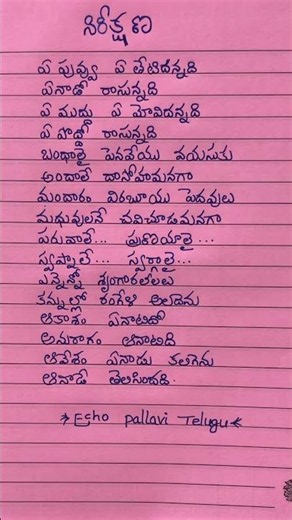 నిరీక్షణ
ఏ పువ్వు ఏ తేటిదన్నది
ఏనాడో రాసున్నది
ఏ ముద్దు ఏ మోవిదన్నది
ఏ పొద్దో రాసున్నది
బంధాలై పెనవేయు వయసుకు
అందాలే దాసోహమనగా
మందారం విరబూయు పెదవులు
మధువులనే చవిచూడమనగా
పరువాలే... ప్రణయాలై...
స్వప్నాలే... స్వర్గాలై...
ఎన్నెన్నో శృంగారలీలలు
కన్నుల్లో రంగేళి అలజెను
ఆకాశం ఏనాటిదో
అనురాగం ఆనాటిది
ఆవేశం ఏనాడు కలిగెను
ఆనాడే తెలిసిందది.
Echo pallavi Telugu